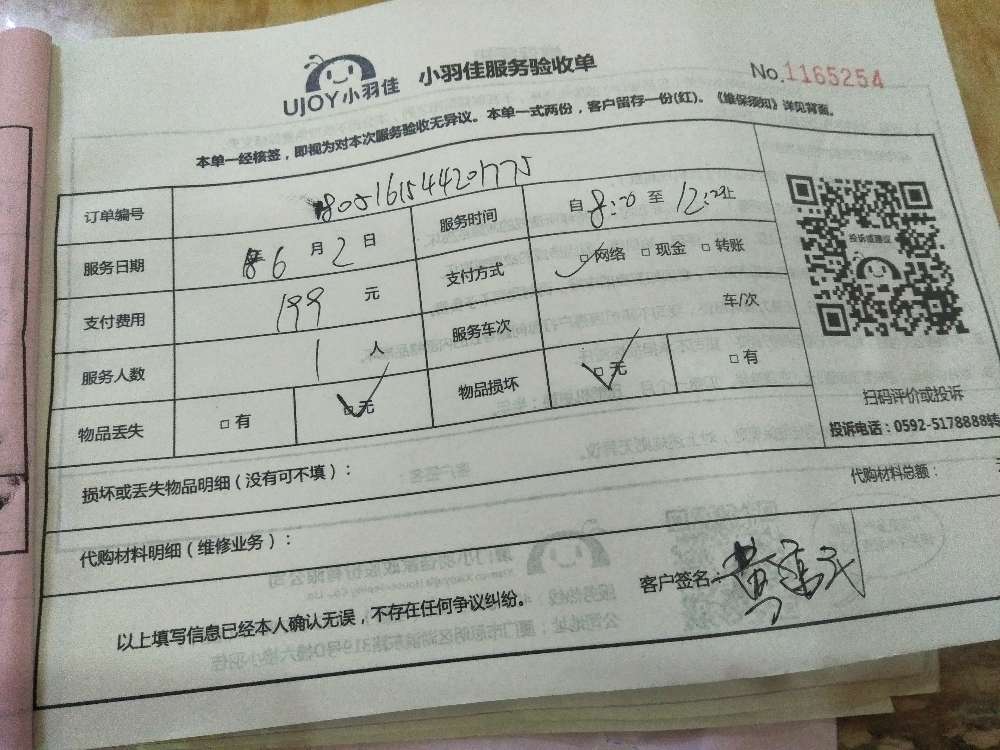 UJOY小羽佳 小羽佳服务验收单 No.1165254
本单一经核签，即视为对本次服务验收无异议。本单一式两份，客户留存一份(红)。《维保须知》详见背面。
订单编号 1805161544201775
服务日期 6月2日 服务时间 自8:20至12:20止
支付费用 199元 支付方式 □网络 □现金 □转账
服务人数 1人 服务车次 车/次
物品丢失 □有 □无 物品损坏 □无 □有
投诉或建议
扫码评价或投诉
投诉电话：0592-5178888转
损坏或丢失物品明细（没有可不填）：
代购材料明细（维修业务）： 代购材料总额：
以上填写信息已经本人确认无误，不存在任何争议纠纷。 客户签名